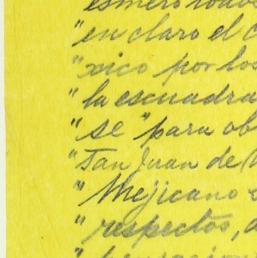 esmero
"en claro el c
"xico por los
"la escuadra
"se "para ob
"San Juan de
"Mejicano
"respectos,